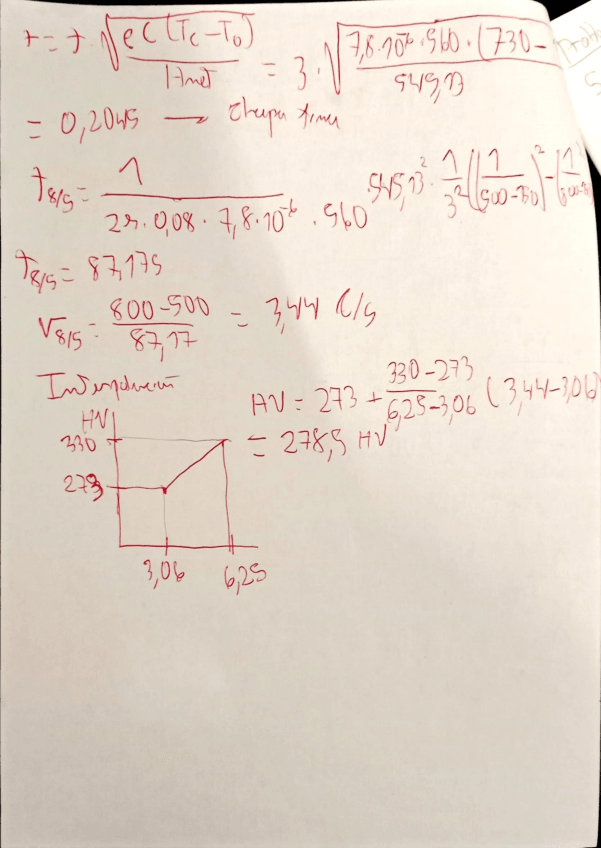 t = t · √(ρC(Tc-To) / Hnet) = 3 · √(7,8·10⁻⁶·560·(730- / 545,13)
= 0,2045 → Chapa fina
t8/5 = 1 / (2π·0,08·7,8·10⁻⁶·560) 545,13² · 1/3² ((1/(500-150))² - (1/
t8/5 = 87,17s
V8/5 = (800-500) / 87,17 = 3,44 C/s
Interpolación
HV = 273 + (330-273)/(6,25-3,06) (3,44-3,06)
= 278,5 HV
HV
330
273
3,06 6,25